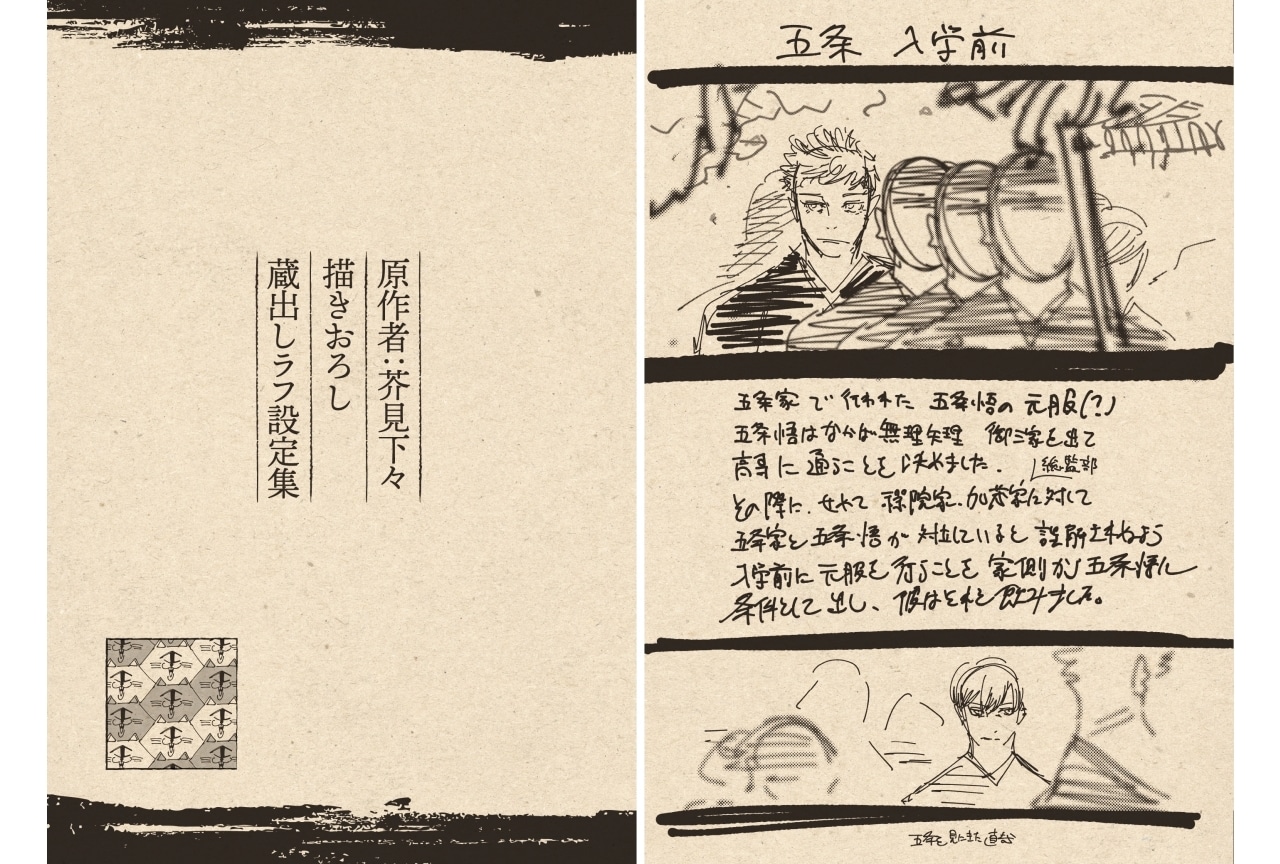 原作者：芥見下々
描きおろし
蔵出しラフ設定集
五条 入学前
五条家で行われた 五条悟の元服(？)
五条悟はなかば無理矢理 御三家を出て
高専に通うことを決めました。
総監部
その際に、せめて 禪院家、加茂家に対して
五条家と五条悟が対立していると誤解されぬよう
入学前に元服を行うことを家側が五条悟に
条件として出し、彼はそれを飲みました。
五条を見にきた直哉